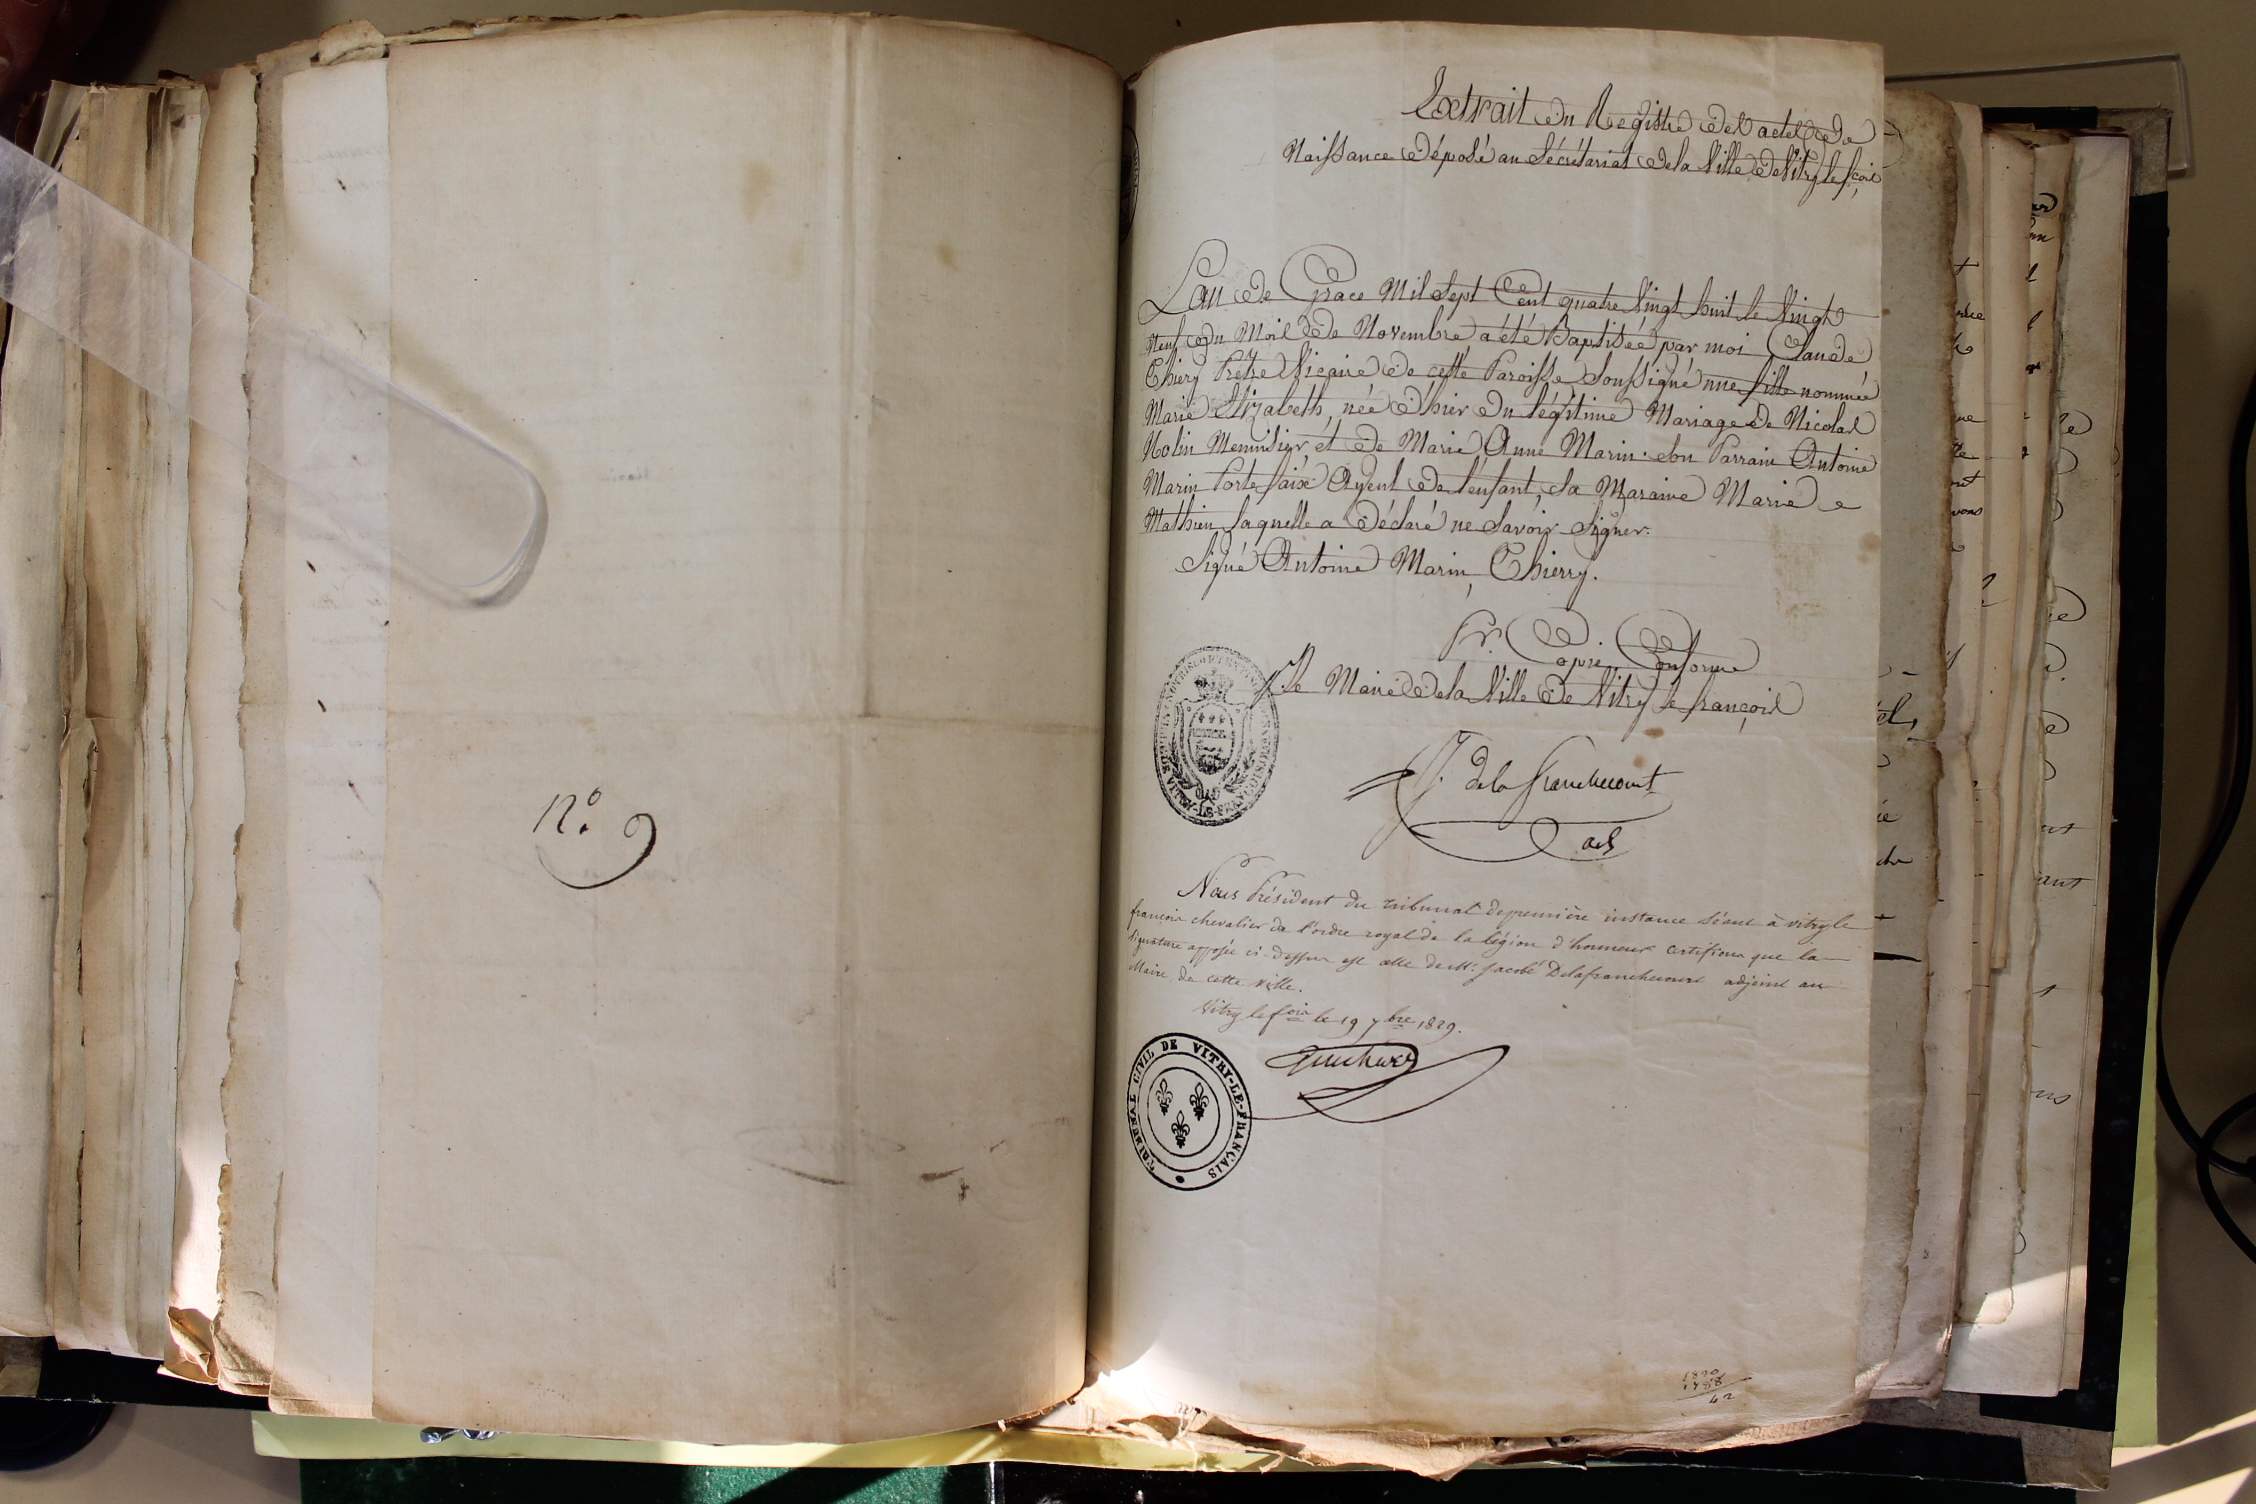 N.° 9
Extrait du Registre des actes de
Naissance déposé au Sécrétariat de la Ville de Vitry le fçois
L'an de Grace Mil Sept Cent quatre Vingt huit le Vingt
Neuf du Mois de Novembre a été Baptisée par moi Claude
Thiery Prêtre Vicaire de cette Paroisse Soussigné une fille nommée
Marie Elizabeth, née d'hier du légitime Mariage de Nicolas
Nolin Menuisier, et de Marie Anne Marin. Son Parrain Antoine
Marin Portefaix Ayeul de l'enfant, Sa Maraine Marie
Mathieu, laquelle a déclaré ne Savoir Signer.
Signé Antoine Marin, Thierry.
Pr. Copie Conforme
Le Maire de la Ville de Vitry le françois
J. dela franchecourt
adt
Nous Président du tribunal de première instance séant à vitry le
françois chevalier de l'ordre royal de la légion d'honneur certifions que la
signature apposée ci-dessus est celle de Mr. Jacobé Delafranchecourt adjoint au
Maire de cette ville.
Vitry le fois le 19 7bre 1829.
TRIBUNAL CIVIL DE VITRY-LE-FRANÇAIS
1788
42